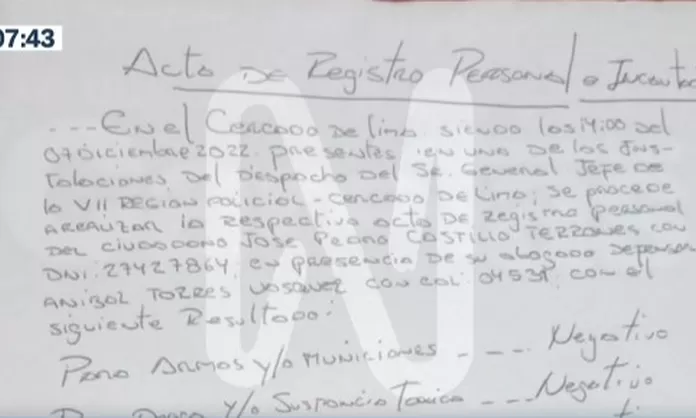 07:43
Acta de Registro Personal e Incauta
--- En el Cercado de Lima siendo las 14:00 del
07 Diciembre 2022. presentes en una de las Ins-
talaciones del Despacho del Sr. General Jefe de
la VII Region Policial - Cercado de Lima; se procede
a realizar la respectiva acta de registro personal
del ciudadano Jose Pedro Castillo Terrones con
DNI. 27427864, en presencia de su abogado defensor
Anibal Torres Vasquez con col. 04531, con el
siguiente Resultado:
Para Armas y/o Municiones ---- Negativo
Droga y/o Sustancia Toxica --- Negativo